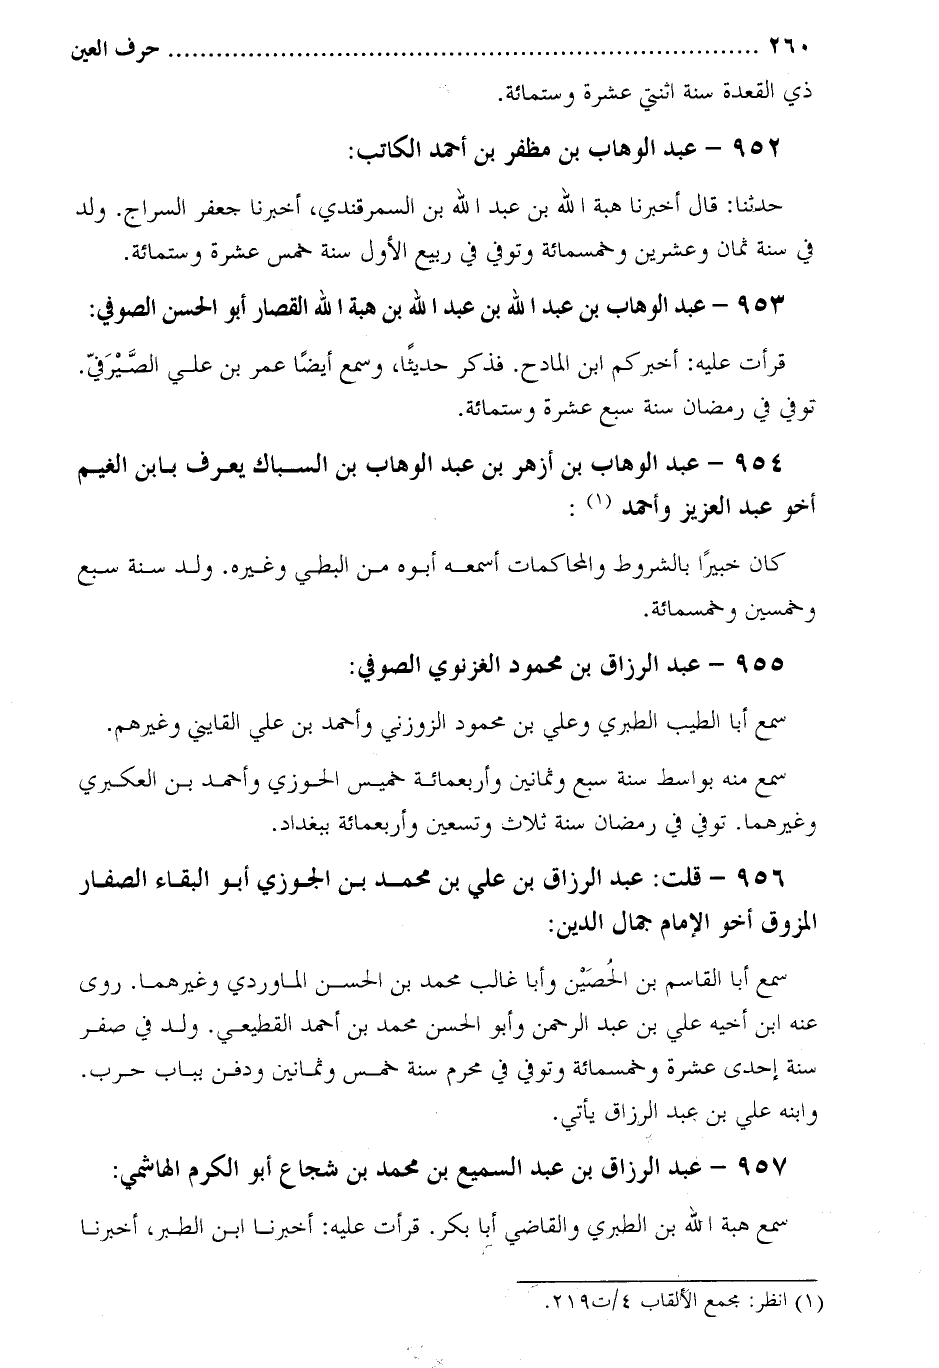 ٢٦٠ ........................................................................ حرف العين
ذي القعدة سنة اثنتي عشرة وستمائة.
٩٥٢ – عبد الوهاب بن مظفر بن أحمد الكاتب:
حدثنا: قال أخبرنا هبة الله بن عبد الله بن السمرقندي، أخبرنا جعفر السراج. ولد
في سنة ثمان وعشرين وخمسمائة وتوفي في ربيع الأول سنة خمس عشرة وستمائة.
٩٥٣ – عبد الوهاب بن عبد الله بن عبد الله بن هبة الله القصار أبو الحسن الصوفي:
قرأت عليه: أخبركم ابن المادح. فذكر حديثًا، وسمع أيضًا عمر بن علي الصَّيْرَفيّ.
توفي في رمضان سنة سبع عشرة وستمائة.
٩٥٤ – عبد الوهاب بن أزهر بن عبد الوهاب بن السباك يعرف بابن الغيم
أخو عبد العزيز وأحمد (١) :
كان خبيرًا بالشروط والمحاكمات أسمعه أبوه من البطي وغيره. ولد سنة سبع
وخمسين وخمسمائة.
٩٥٥ – عبد الرزاق بن محمود الغزنوي الصوفي:
سمع أبا الطيب الطبري وعلي بن محمود الزوزني وأحمد بن علي القايني وغيرهم.
سمع منه بواسط سنة سبع وثمانين وأربعمائة خميس الحوزي وأحمد بن العكبري
وغيرهما. توفي في رمضان سنة ثلاث وتسعين وأربعمائة ببغداد.
٩٥٦ – قلت: عبد الرزاق بن علي بن محمد بن الجوزي أبو البقاء الصفار
المزوق أخو الإمام جمال الدين:
سمع أبا القاسم بن الحُصَيْن وأبا غالب محمد بن الحسن الماوردي وغيرهما. روى
عنه ابن أخيه علي بن عبد الرحمن وأبو الحسن محمد بن أحمد القطيعي. ولد في صفر
سنة إحدى عشرة وخمسمائة وتوفي في محرم سنة خمس وثمانين ودفن بباب حرب.
وابنه علي بن عبد الرزاق يأتي.
٩٥٧ – عبد الرزاق بن عبد السميع بن محمد بن شجاع أبو الكرم الهاشمي:
سمع هبة الله بن الطبري والقاضي أبا بكر. قرأت عليه: أخبرنا ابن الطبر، أخبرنا
(١) انظر: مجمع الألقاب ٤/ت٢١٩.